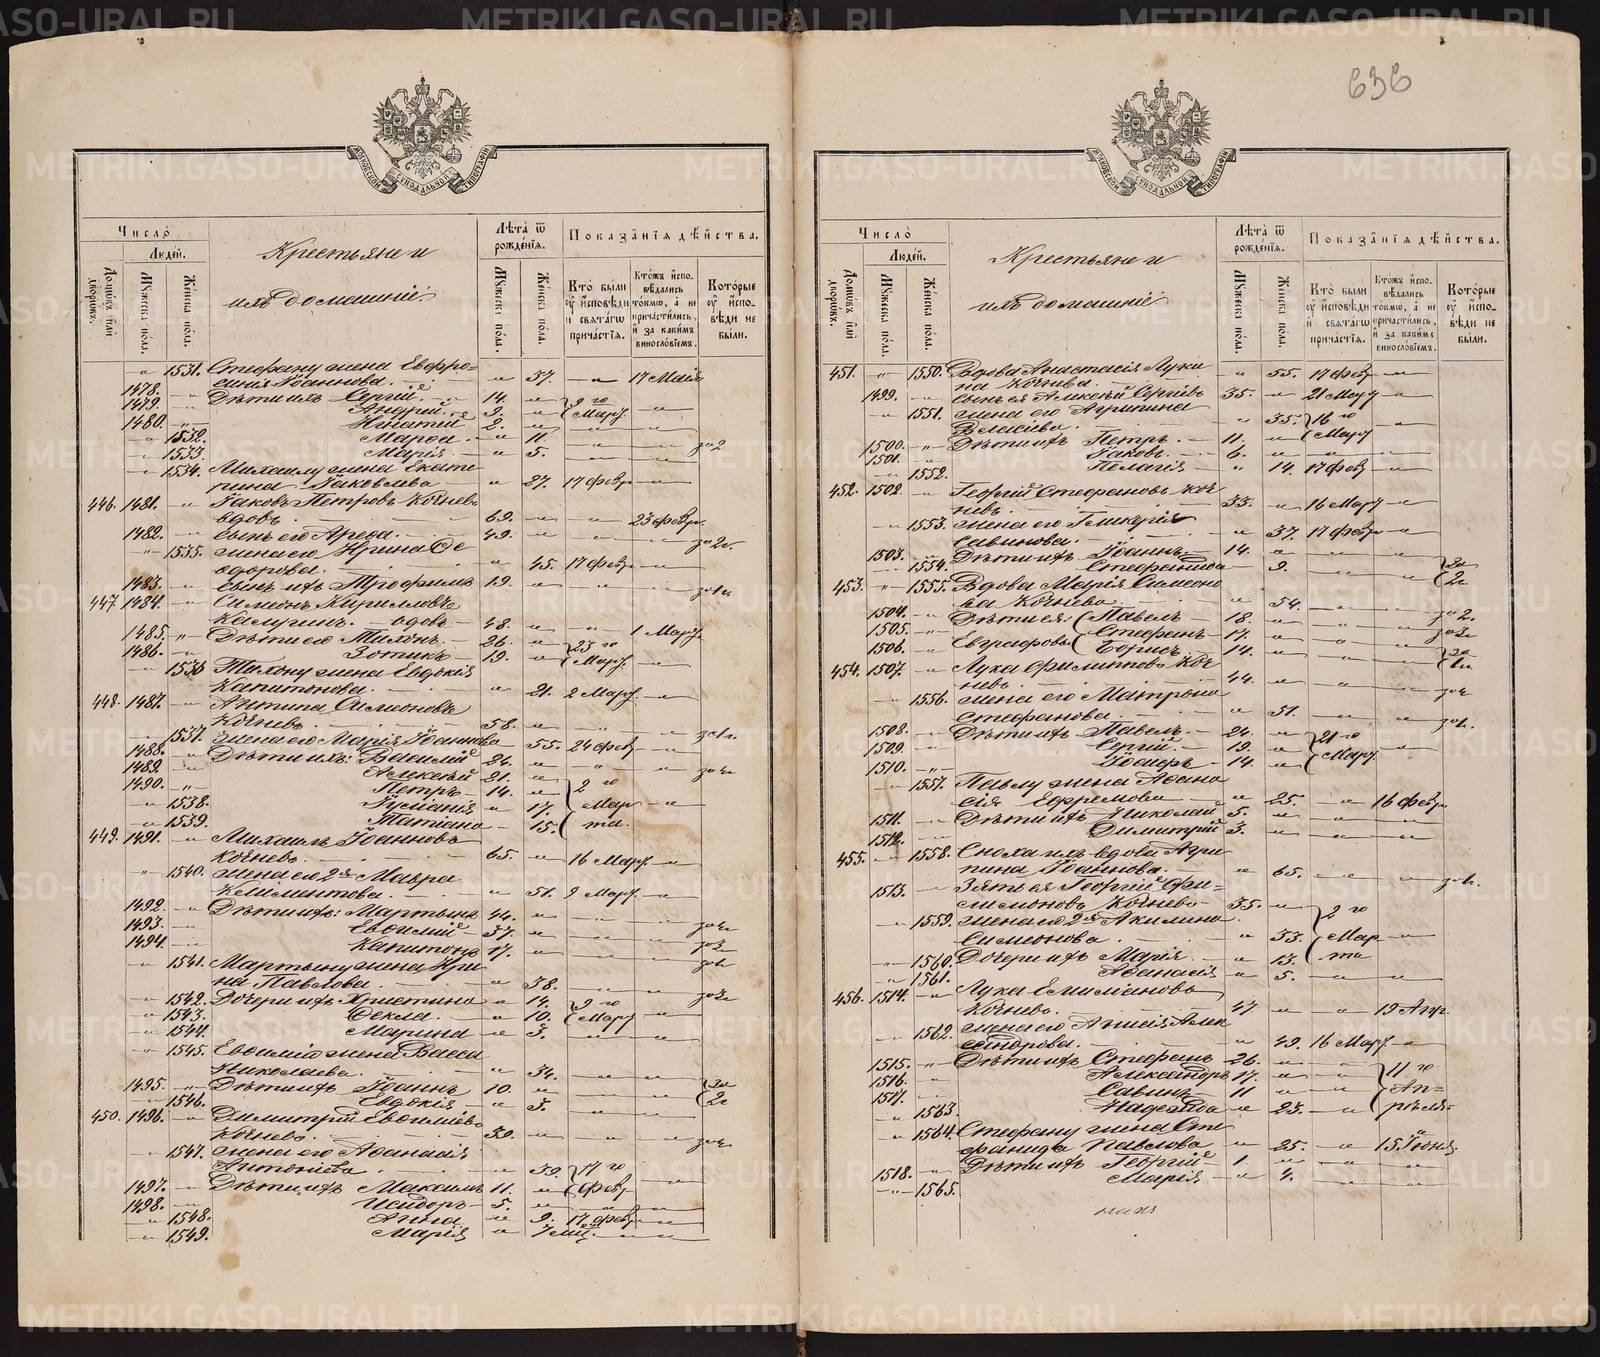 636
МОСКОВСКОЙ СУНОДАЛЬНОЙ ТИПОГРАФІИ
Число̀
Людей.
Домѡвъ или дворѡвъ.
Мꙋжеска пола.
Женска пола.
Крестьяне и
ихъ домашніе
Лѣта ѿ рожденїѧ.
Мꙋжеска пола.
Женска пола.
Показанїѧ дѣйства.
Кто были ꙋ исповѣди и свѧтагѡ причастїѧ.
Ктожъ исповѣдались токмѡ, а не причастились, и за какимъ винословїемъ.
Которые ꙋ исповѣди не были.
" 1531. Стефану жена Евфро-
синія Іоаннова. " 37. " 17 Маія
1478. " Дѣти ихъ Сергій. 14. " 9 го
1479. " Андрей. 9. " Мар.
1480. " Игнатей 2. "
" 1532. Марѳа. " 11. за 2
" 1533. Марія. " 5.
" 1534. Михаилу жена Екате
рина Іаковлева " 27. 17 февр
446. 1481. " Іаковъ Петровъ Кочневъ
вдовъ. 69. " " 23 февр.
1482. " Сынъ его Ареѳа. 49. " за 2.
" 1535. жена его Ирина Ѳе
одорова. " 45. 17 февр
1483. " сынъ ихъ Трофимъ 19. "
447 1484. " Симеонъ Кирилловъ
вдовъ 48. " " 1 Мар.
1485. " Дѣти его Тихонъ. 26. " 23 го
1486. " Зотикъ 19. " Мар.
" 1536 Тихону жена Евдокія
Капитонова. " 21. 2 Мар.
448. 1487. " Антипа Симеоновъ
Кочневъ. 58. "
" 1537. жена его Марія Іоаннова " 55. 24 фев
1488. " Дѣти ихъ: Василій 26. "
1489. " Алексѣй 21. "
1490. " Петръ 14. " 2 го
" 1538. Іуліанія " 17. Мар
" 1539. Татіана 15. та.
449. 1491. " Михаилъ Іоанновъ
Кочневъ. 65. " 16 Мар.
" 1540. жена его 2я Мавра
Климентова. " 51. 9 Мар.
1492. " Дѣти ихъ: Мартынъ 44. "
1493. " Евѳимій 37. "
1494. " Капитонъ 17. "
" 1541. Мартыну жена Ири
на Павлова. " 38.
" 1542. Дочери ихъ Христина " 14. 9 го
" 1543. Ѳекла. " 10. Мар.
" 1544. Марина " 3.
" 1545. Евѳимію жена Васса
Николаева. " 34.
1495. " Дѣти ихъ Іоаннъ 10. "
" 1546. Евдокія " 5.
450. 1496. " Димитрій Евѳиміевъ
Кочневъ. 39. "
" 1547. жена его Аѳанасія
Антоніева " 39. 17 го
1497. " Дѣти ихъ Максимъ 11. " Фев
1498. " Исидоръ 5. "
" 1548. Анна " 9. 17 фев
" 1549. Марія "
Число̀
Людей.
Домѡвъ или дворѡвъ.
Мꙋжеска пола.
Женска пола.
Крестьяне и
ихъ домашніе
Лѣта ѿ рожденїѧ.
Мꙋжеска пола.
Женска пола.
Показанїѧ дѣйства.
Кто были ꙋ исповѣди и свѧтагѡ причастїѧ.
Ктожъ исповѣдались токмѡ, а не причастились, и за какимъ винословїемъ.
Которые ꙋ исповѣди не были.
451. " 1550. Вдова Анастасія Луки
на Кочнева. " 55. 17 фев
1499. " Сынъ ея Алексѣй Сергѣевъ 35. " 21 Мар
" 1551. жена его Агрипина
Власіева. " 35. 16 го
1500. " Дѣти ихъ Петръ. 11. " Мар
1501. " Іаковъ. 6. "
" 1552. Пелагія " 14. 17 фев
452. 1502. " Георгій Стефановъ Коч
невъ. 35. " 16 Мар
" 1553. жена его Гликерія
Савинова. " 37. 17 фев
1503. " Дѣти ихъ Іоаннъ. 14. "
" 1554. Стефанида " 9.
453. " 1555. Вдова Марія Симеоно
ва Кочнева. " 54.
1504. " Дѣти ея: Павелъ 18. " за 2.
1505. " Евграфовы Стефанъ 17. "
1506. " Борисъ 14. "
454. 1507. " Лука Филипповъ Коч
невъ 44. "
" 1556. жена его Матрона
Стефанова. " 51.
1508. " Дѣти ихъ Павелъ 24. " 21 го
1509. " Сергій. 19. " Мар
1510. " Іосифъ 14. "
" 1557. Павлу жена Аѳана
сія Ефремова " 25. " 16 февр
1511. " Дѣти ихъ Николай 5. "
1512. " Димитрій 3. "
455. " 1558. Сноха ихъ вдова Агри
пина Іоаннова. " 65.
1513. " Зять ея Георгій Фи-
лимоновъ Кочневъ 35. "
" 1559. жена его 2я Акилина 2 го
Симеонова " 33. Мар
" 1560. Дочери ихъ Марія. " 13. та
" 1561. Аѳанасія " 5.
456. 1514. " Лука Емиліановъ
Кочневъ. 47. " " 19 Апр
" 1562. жена его Анисія Алек
сандрова. " 49. 16 Мар.
1515. " Дѣти ихъ Стефанъ 26. "
1516. " Александръ 17. " 11 го
1517. " Савинъ 11 " Ап-
" 1563. Надежда " 23. рѣля
" 1564. Стефану жена Сте
фанида Павлова " 25. " 15 Іюня
1518. " Дѣти ихъ Георгій 1. "
" 1565. Марія " 4.
METRIKI.GASO-URAL.RU